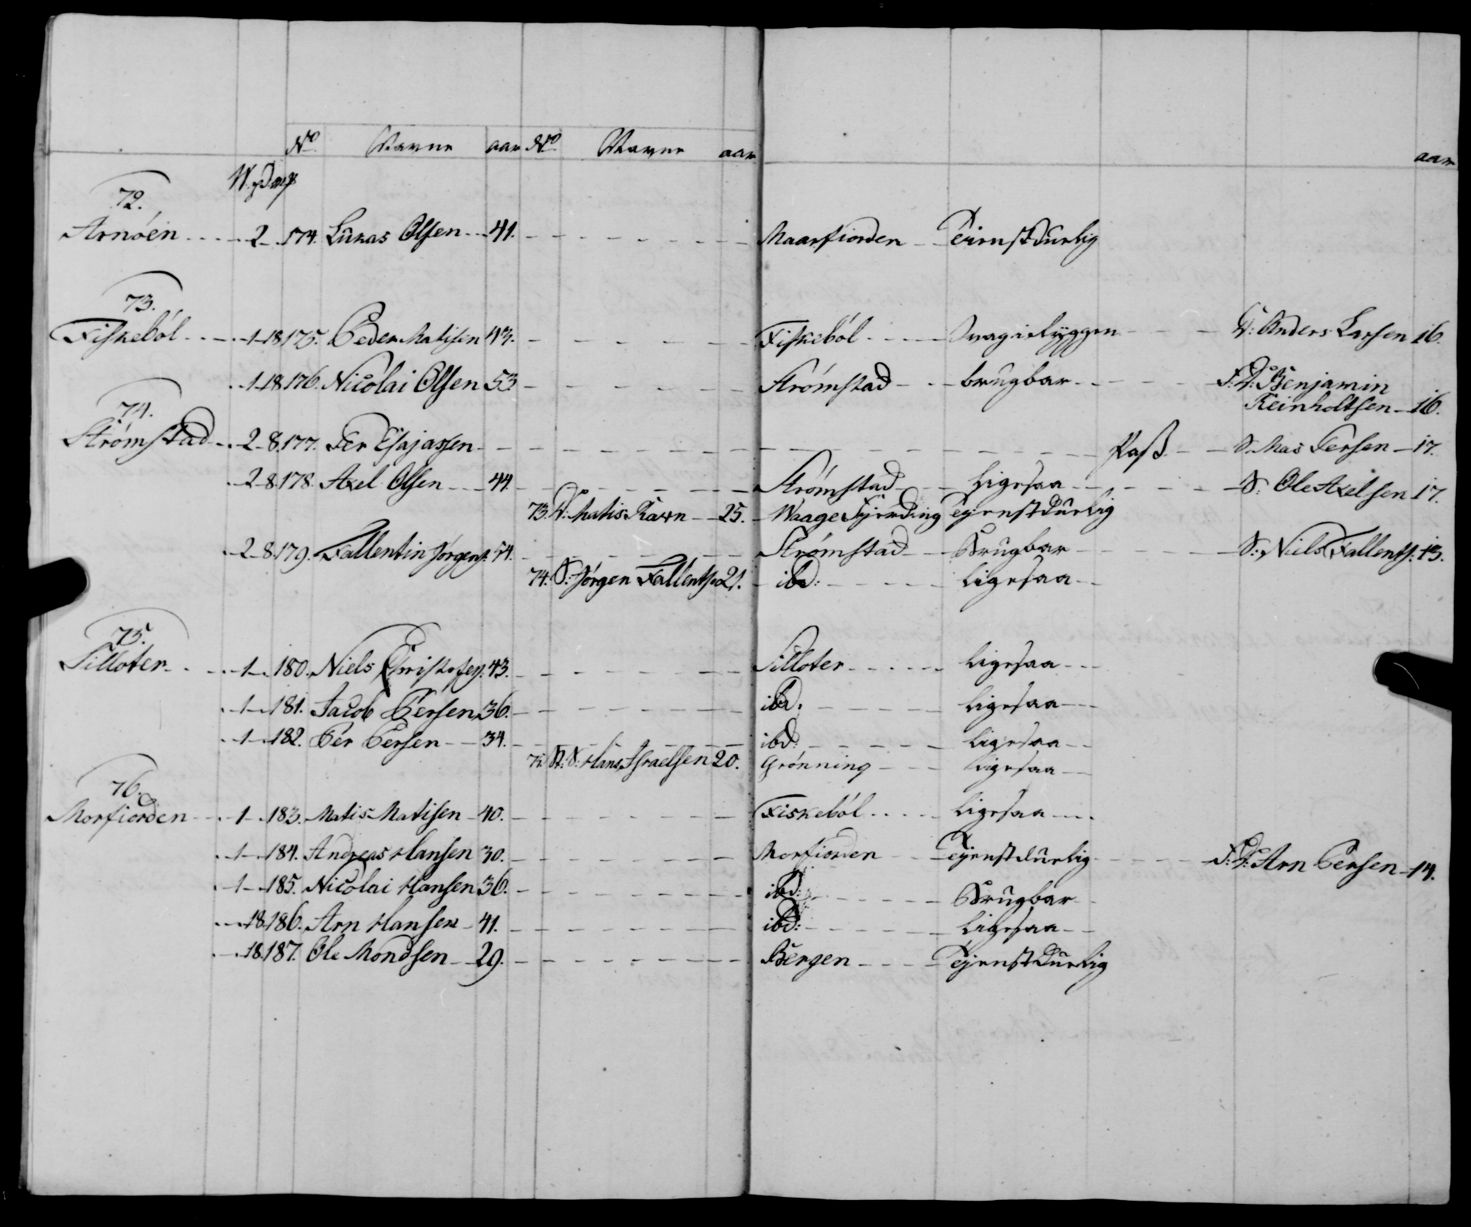 No Navne aar No Navne aar aar
W. pd mß
72.
Arnöen 2 174. Lucas Olsen 41. Maarfiorden Tienstdurlig
73.
Fiskeböl 1 18 175. Peder Matisen 43. Fiskeböl D: Anders Larsen 16.
1 18 176. Nicolai Olsen 53 Strömstad brugbar F: D: Benjamin
Reinholtsen 16.
74.
Strömstad 2 8 177. Per Esajassen Paß S. Mas Persen 17.
2 8 178. Axel Olsen 44 Strömstad ligesaa S. Ole Axelsen 17.
73. D: Matis Karn 25. Waage Fjerding Tejenstdurlig
2 8 179. Fallentin Jörgens. 54. Strömstad Brugbar S: Niels Fallents. 13.
74. S: Jörgen Fallents. 21. ibd: ligesaa
75.
Silloter 1 180. Niels Christofes. 43. Silloter ligesaa
1 181. Jacob Persen 36. ibd. ligesaa
1 182. Per Persen 34. ibd: ligesaa
75. St: S: Hans Israelsen 20. Grönning ligesaa
76.
Morfiorden 1 183. Matis Matisen 40. Fiskeböl ligesaa
1 184. Andreas Hansen 30. Morfiorden Tejenstdurlig F: D: Arn Persen 14.
1 185. Nicolai Hansen 36. ibd: Brugbar
18 186. Arn Hansen 41. ibd: ligesaa
18 187. Ole Mondsen 29. Bergen Tejenstdurlig